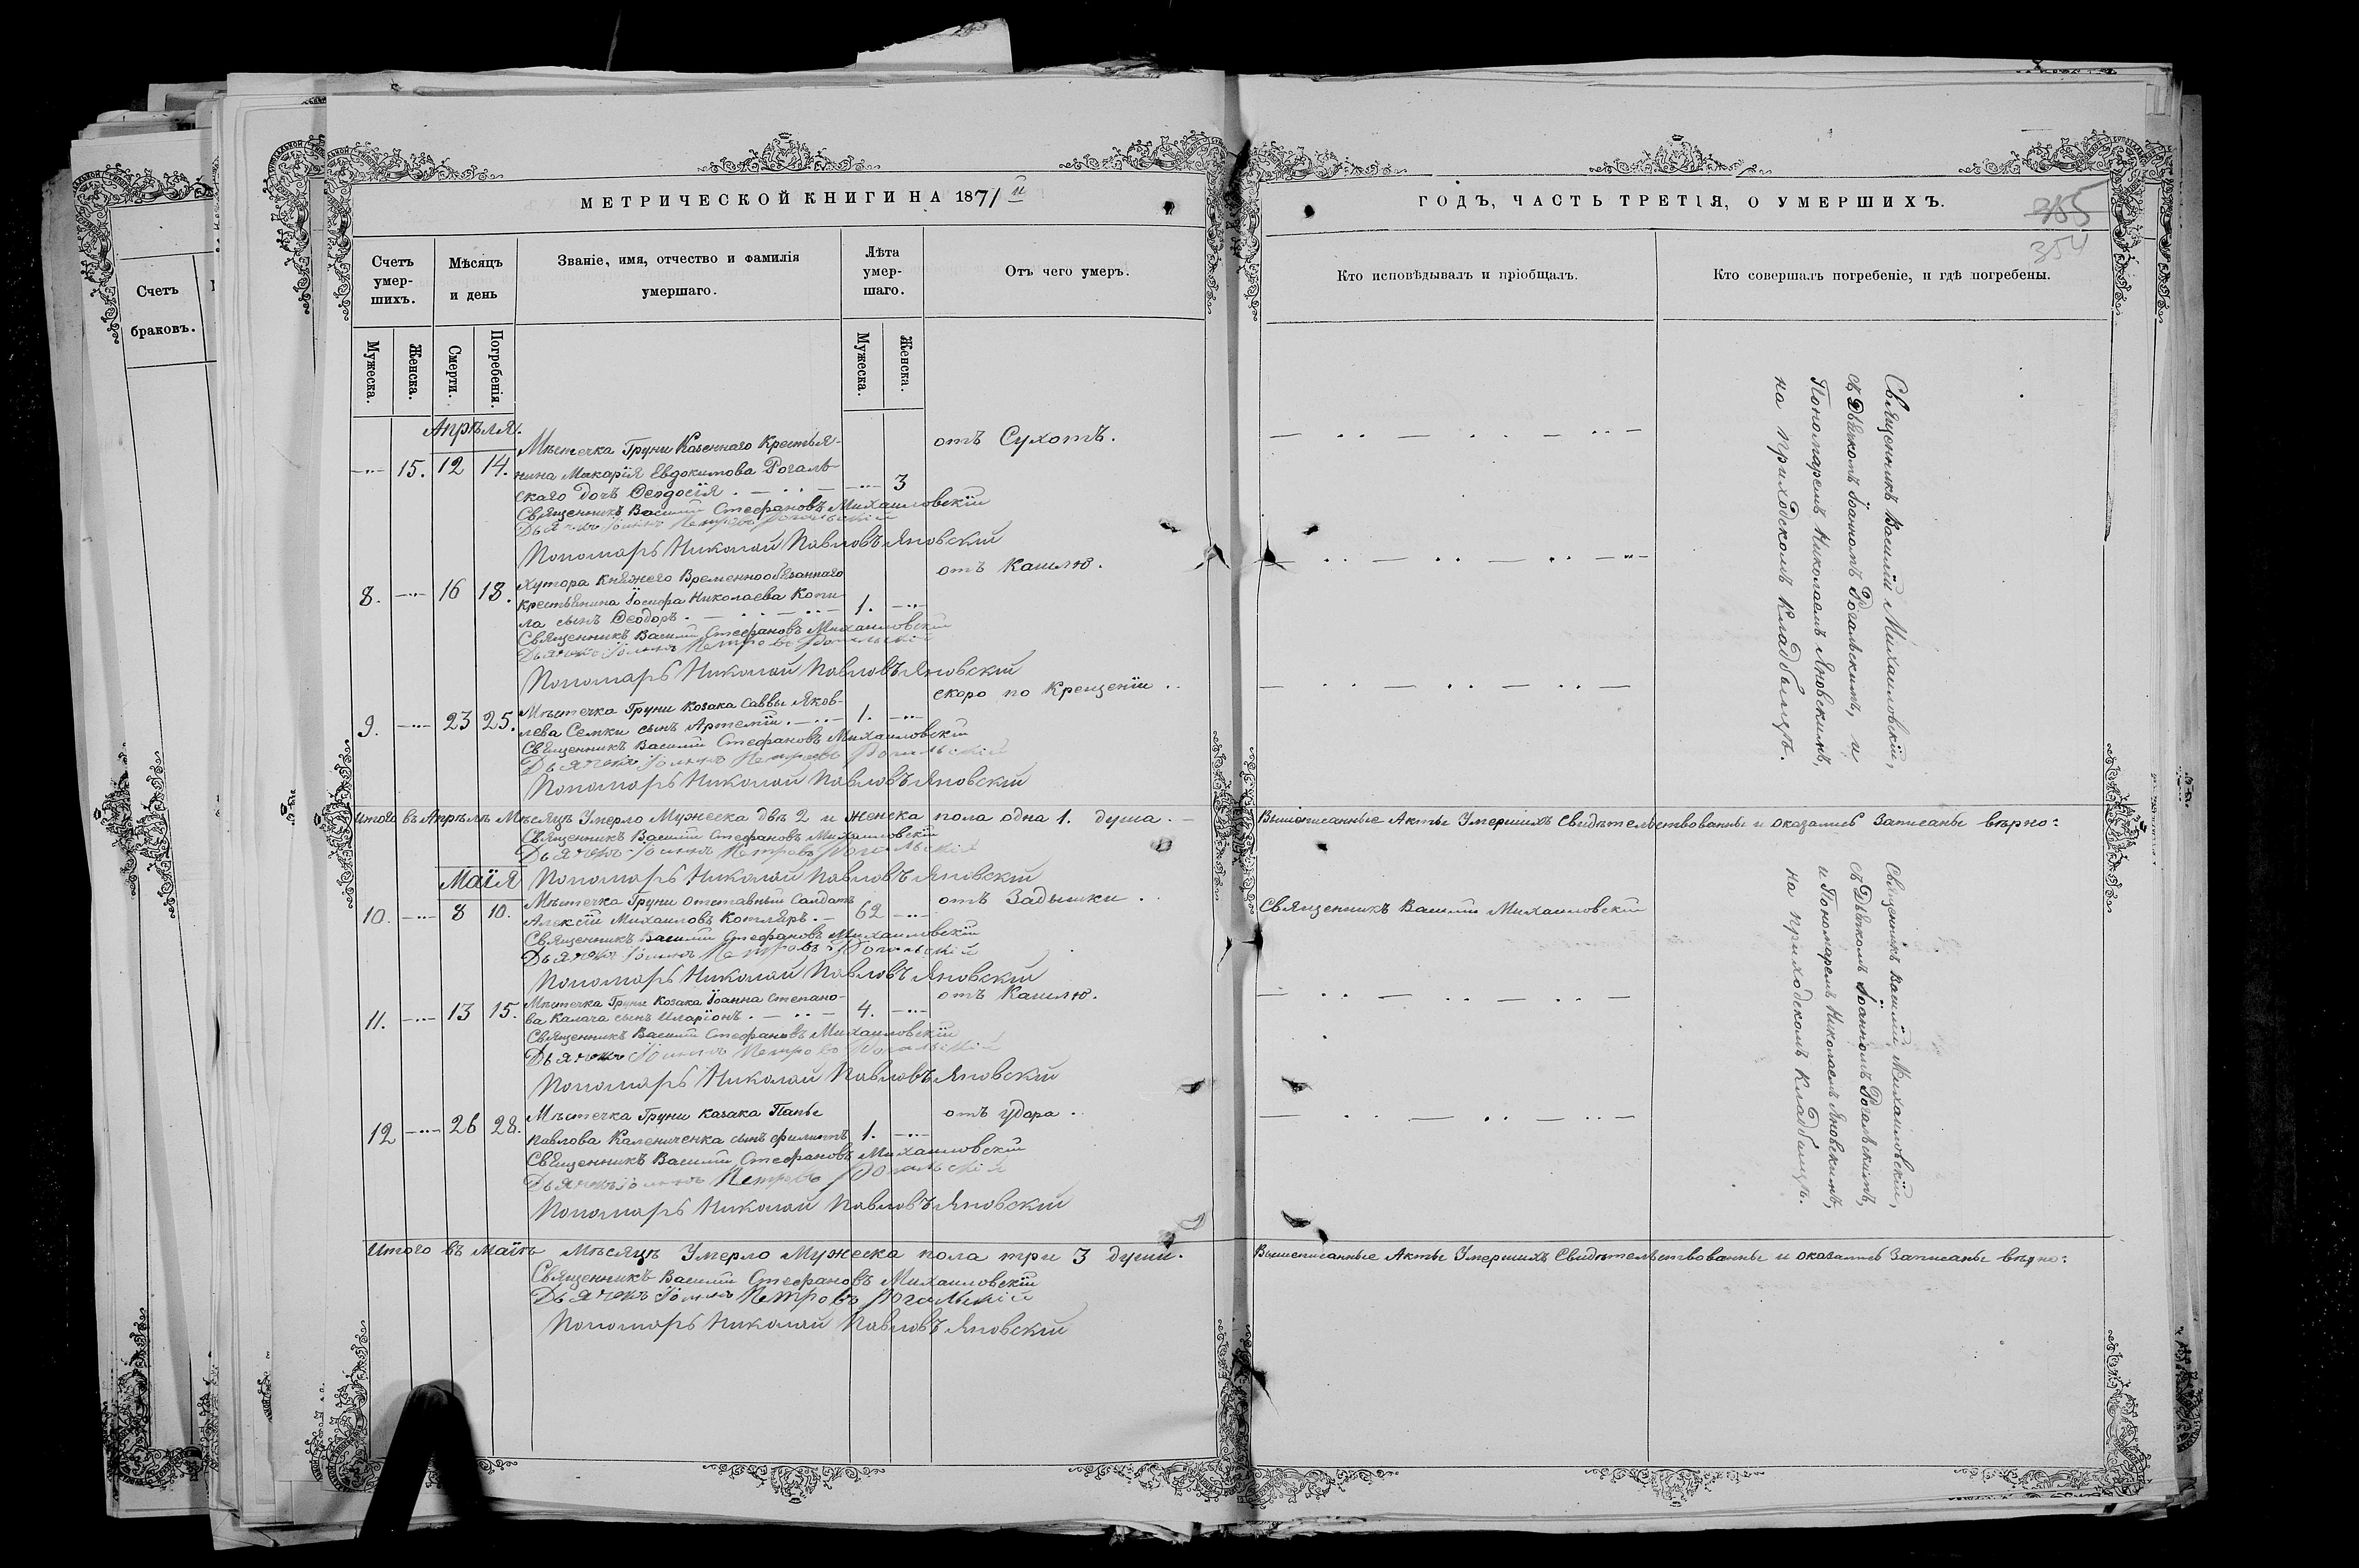 МЕТРИЧЕСКОЙ КНИГИ НА 1871 й
ГОДЪ, ЧАСТЬ ТРЕТІЯ, О УМЕРШИХЪ.
355
354
Счетъ
браковъ.
Счетъ
умер-
шихъ.
Мужеска.
Женска.
Мѣсяцъ
и день
Смерти.
Погребенія.
Званіе, имя, отчество и фамилія
умершаго.
Лѣта
умер-
шаго.
Мужеска.
Женска.
Отъ чего умеръ.
Кто исповѣдывалъ и пріобщалъ.
Кто совершалъ погребеніе, и гдѣ погребены.
Апрѣля.
15. 12 14.
Мѣстечка Груни Казеннаго Крестья-
нина Макарія Евдокимова Рогаль-
скаго дочь Ѳеодосія. 3
отъ Сухотъ.
Священникъ Василій Стефановъ Михаиловскій
Дьячекъ Іоаннъ Петровъ Рогальскій
Пономарь Николай Павловъ Яновскій
8. 16 18.
Хутора Княжего Временнообязаннаго
крестьянина Іосифа Николаева Копи-
ла сынъ Ѳеодоръ. 1.
отъ Кашлю.
Священникъ Василій Стефановъ Михаиловскій
Дьячекъ Іоаннъ Петровъ Рогальскій
Пономарь Николай Павловъ Яновскій
9. 23 25.
Мѣстечка Груни козака Саввы Яков-
лева Семки сынъ Артемій. 1.
скоро по Крещеніи.
Священникъ Василій Стефановъ Михаиловскій
Дьячекъ Іоаннъ Петровъ Рогальскій
Пономарь Николай Павловъ Яновскій
Священникъ Василій Михаиловскій,
съ Дьячкомъ Іоанномъ Рогальскимъ, и
Пономаремъ Николаемъ Яновскимъ,
на приходскомъ кладбищѣ.
Итого въ Апрѣлѣ Мѣсяцѣ Умерло Мужеска двѣ 2 и женска пола одна 1. душа.
Вышеписанные Акты Умершихъ Свидѣтельствованы и оказались Записаны вѣрно:
Священникъ Василій Стефановъ Михаиловскій
Дьячекъ Іоаннъ Петровъ Рогальскій
Пономарь Николай Павловъ Яновскій
Маія
10. 8 10.
Мѣстечка Груни отставный Салдатъ
Алексій Михаиловъ Котляръ. 62
отъ Задышки.
Священникъ Василій Михаиловскій
Священникъ Василій Стефановъ Михаиловскій
Дьячекъ Іоаннъ Петровъ Рогальскій
Пономарь Николай Павловъ Яновскій
11. 13 15.
Мѣстечка Груни Козака Іоанна Степано-
ва Калача сынъ Иларіонъ. 4.
отъ Кашлю.
Священникъ Василій Стефановъ Михаиловскій
Дьячекъ Іоаннъ Петровъ Рогальскій
Пономарь Николай Павловъ Яновскій
12 26 28.
Мѣстечка Груни казака
Павлова Калениченка сынъ Филиппъ 1.
отъ удара.
Священникъ Василій Стефановъ Михаиловскій
Дьячекъ Іоаннъ Петровъ Рогальскій
Пономарь Николай Павловъ Яновскій
Священникъ Василій Михаиловскій,
съ Дьячкомъ Іоанномъ Рогальскимъ,
и Пономаремъ Николаемъ Яновскимъ,
на приходскомъ кладбищѣ.
Итого въ Маіѣ Мѣсяцѣ Умерло Мужеска пола три 3 души.
Вышеписанные Акты Умершихъ Свидѣтельствованы и оказались Записаны вѣрно:
Священникъ Василій Стефановъ Михаиловскій
Дьячекъ Іоаннъ Петровъ Рогальскій
Пономарь Николай Павловъ Яновскій